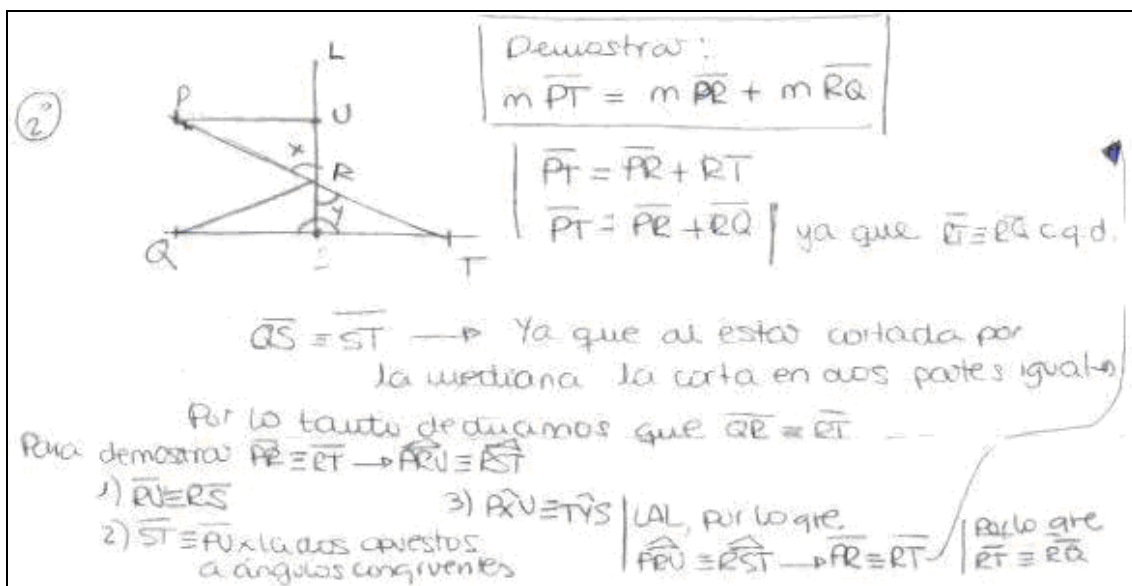 2º
L
P
U
x
R
y
Q
T
Demostrar:
m PT = m PR + m RQ
PT = PR + RT
PT = PR + RQ ya que RT ≡ RQ c.q.d.
QS ≡ ST → Ya que al estar cortada por
la mediana la corta en dos partes iguales
Por lo tanto deducimos que QR ≡ RT
Para demostrar PR ≡ RT → PRU ≡ RST
1) RU ≡ RS
2) ST ≡ PU x lados opuestos
a ángulos congruentes
3) PXU ≡ TYS LAL, por lo que
PRU ≡ RST → PR ≡ RT
Por lo que
RT ≡ RQ